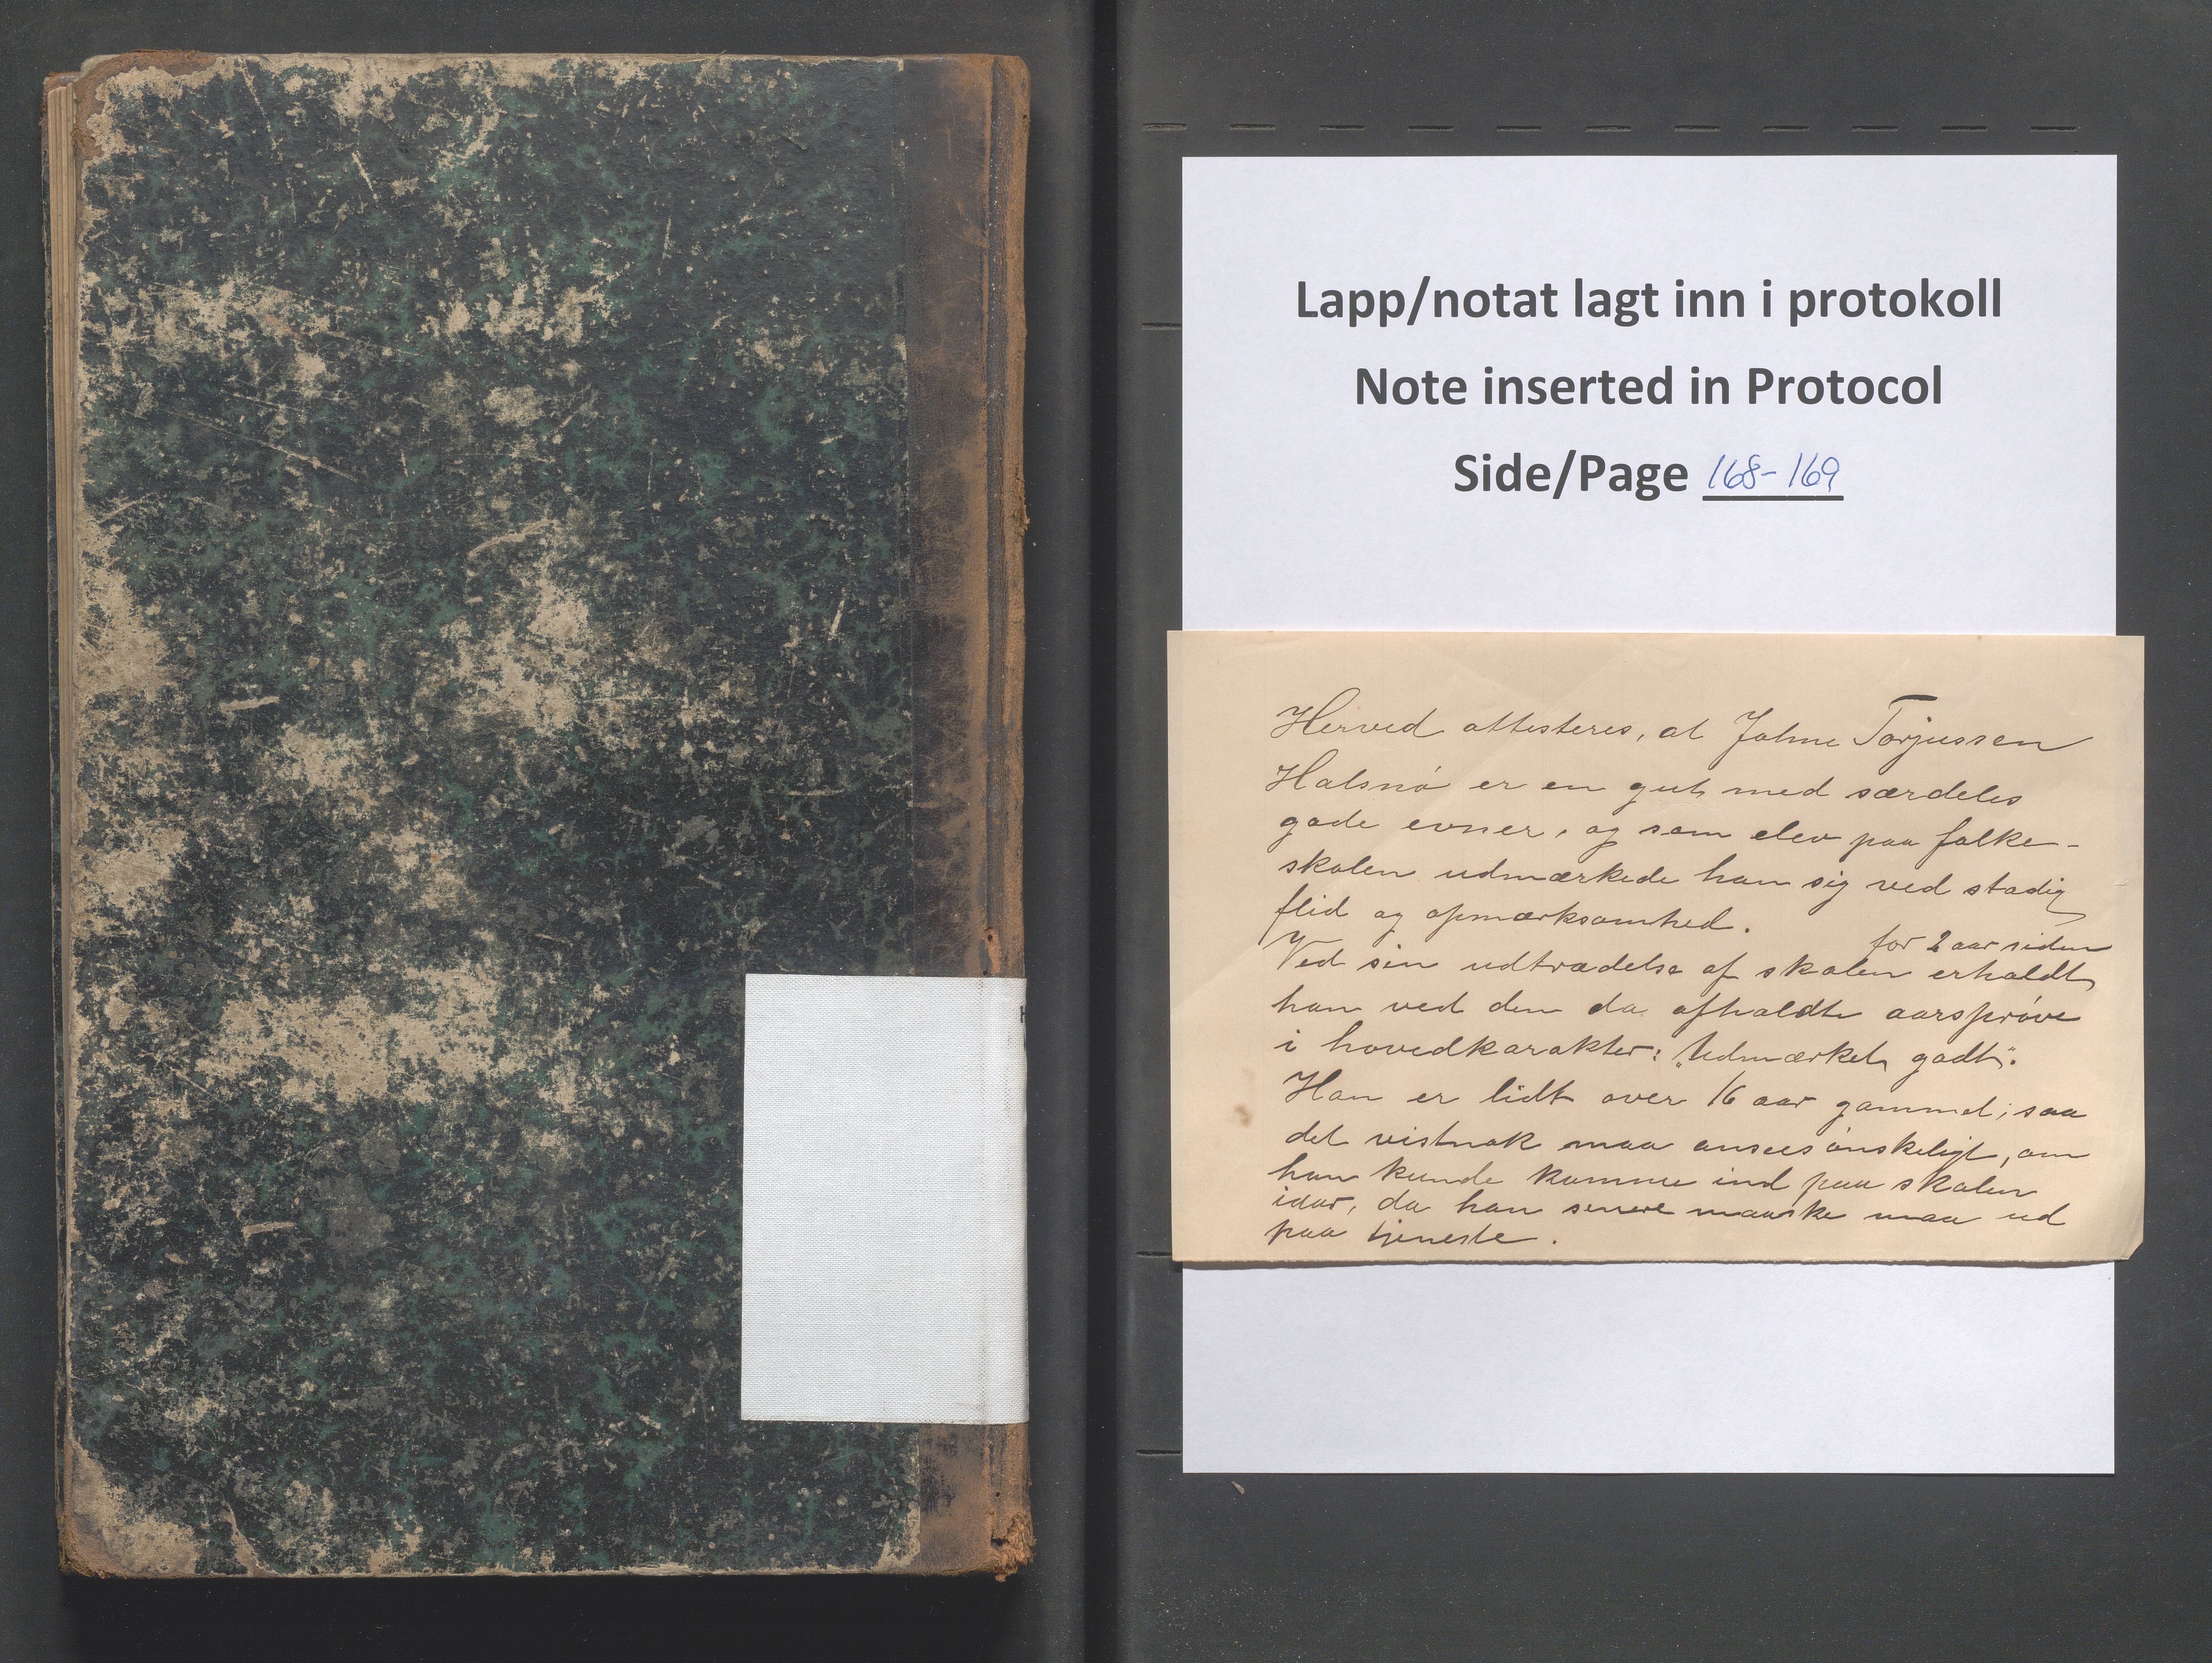 Lapp/notat lagt inn i protokoll
Note inserted in Protocol
Side/Page 168-169
Herved attesteres, at Johne Torjussen
Halsnø er en gut med særdeles
gode evner, og som elev paa folke-
skolen udmærkede han sig ved stadig
flid og opmærksomhed.
for 2 aar siden
Ved sin udtrædelse af skolen erholdt
han ved den da afholdte aarsprøve
i hovedkarakter: „Udmærket godt".
Han er lidt over 16 aar gammel; saa
det vistnok maa ansees ønskeligt, om
han kunde komme ind paa skolen
iaar, da han senere maaske maa ud
paa tjeneste.